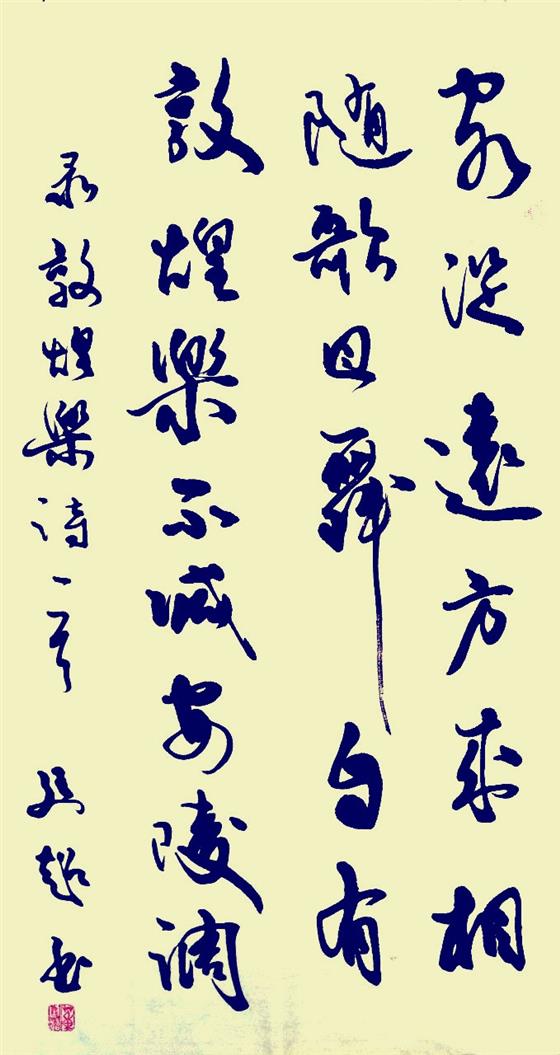 客從遠方來相
隨歌且舞自有
敦煌樂不減安陵調
录敦煌樂詩一首 超书